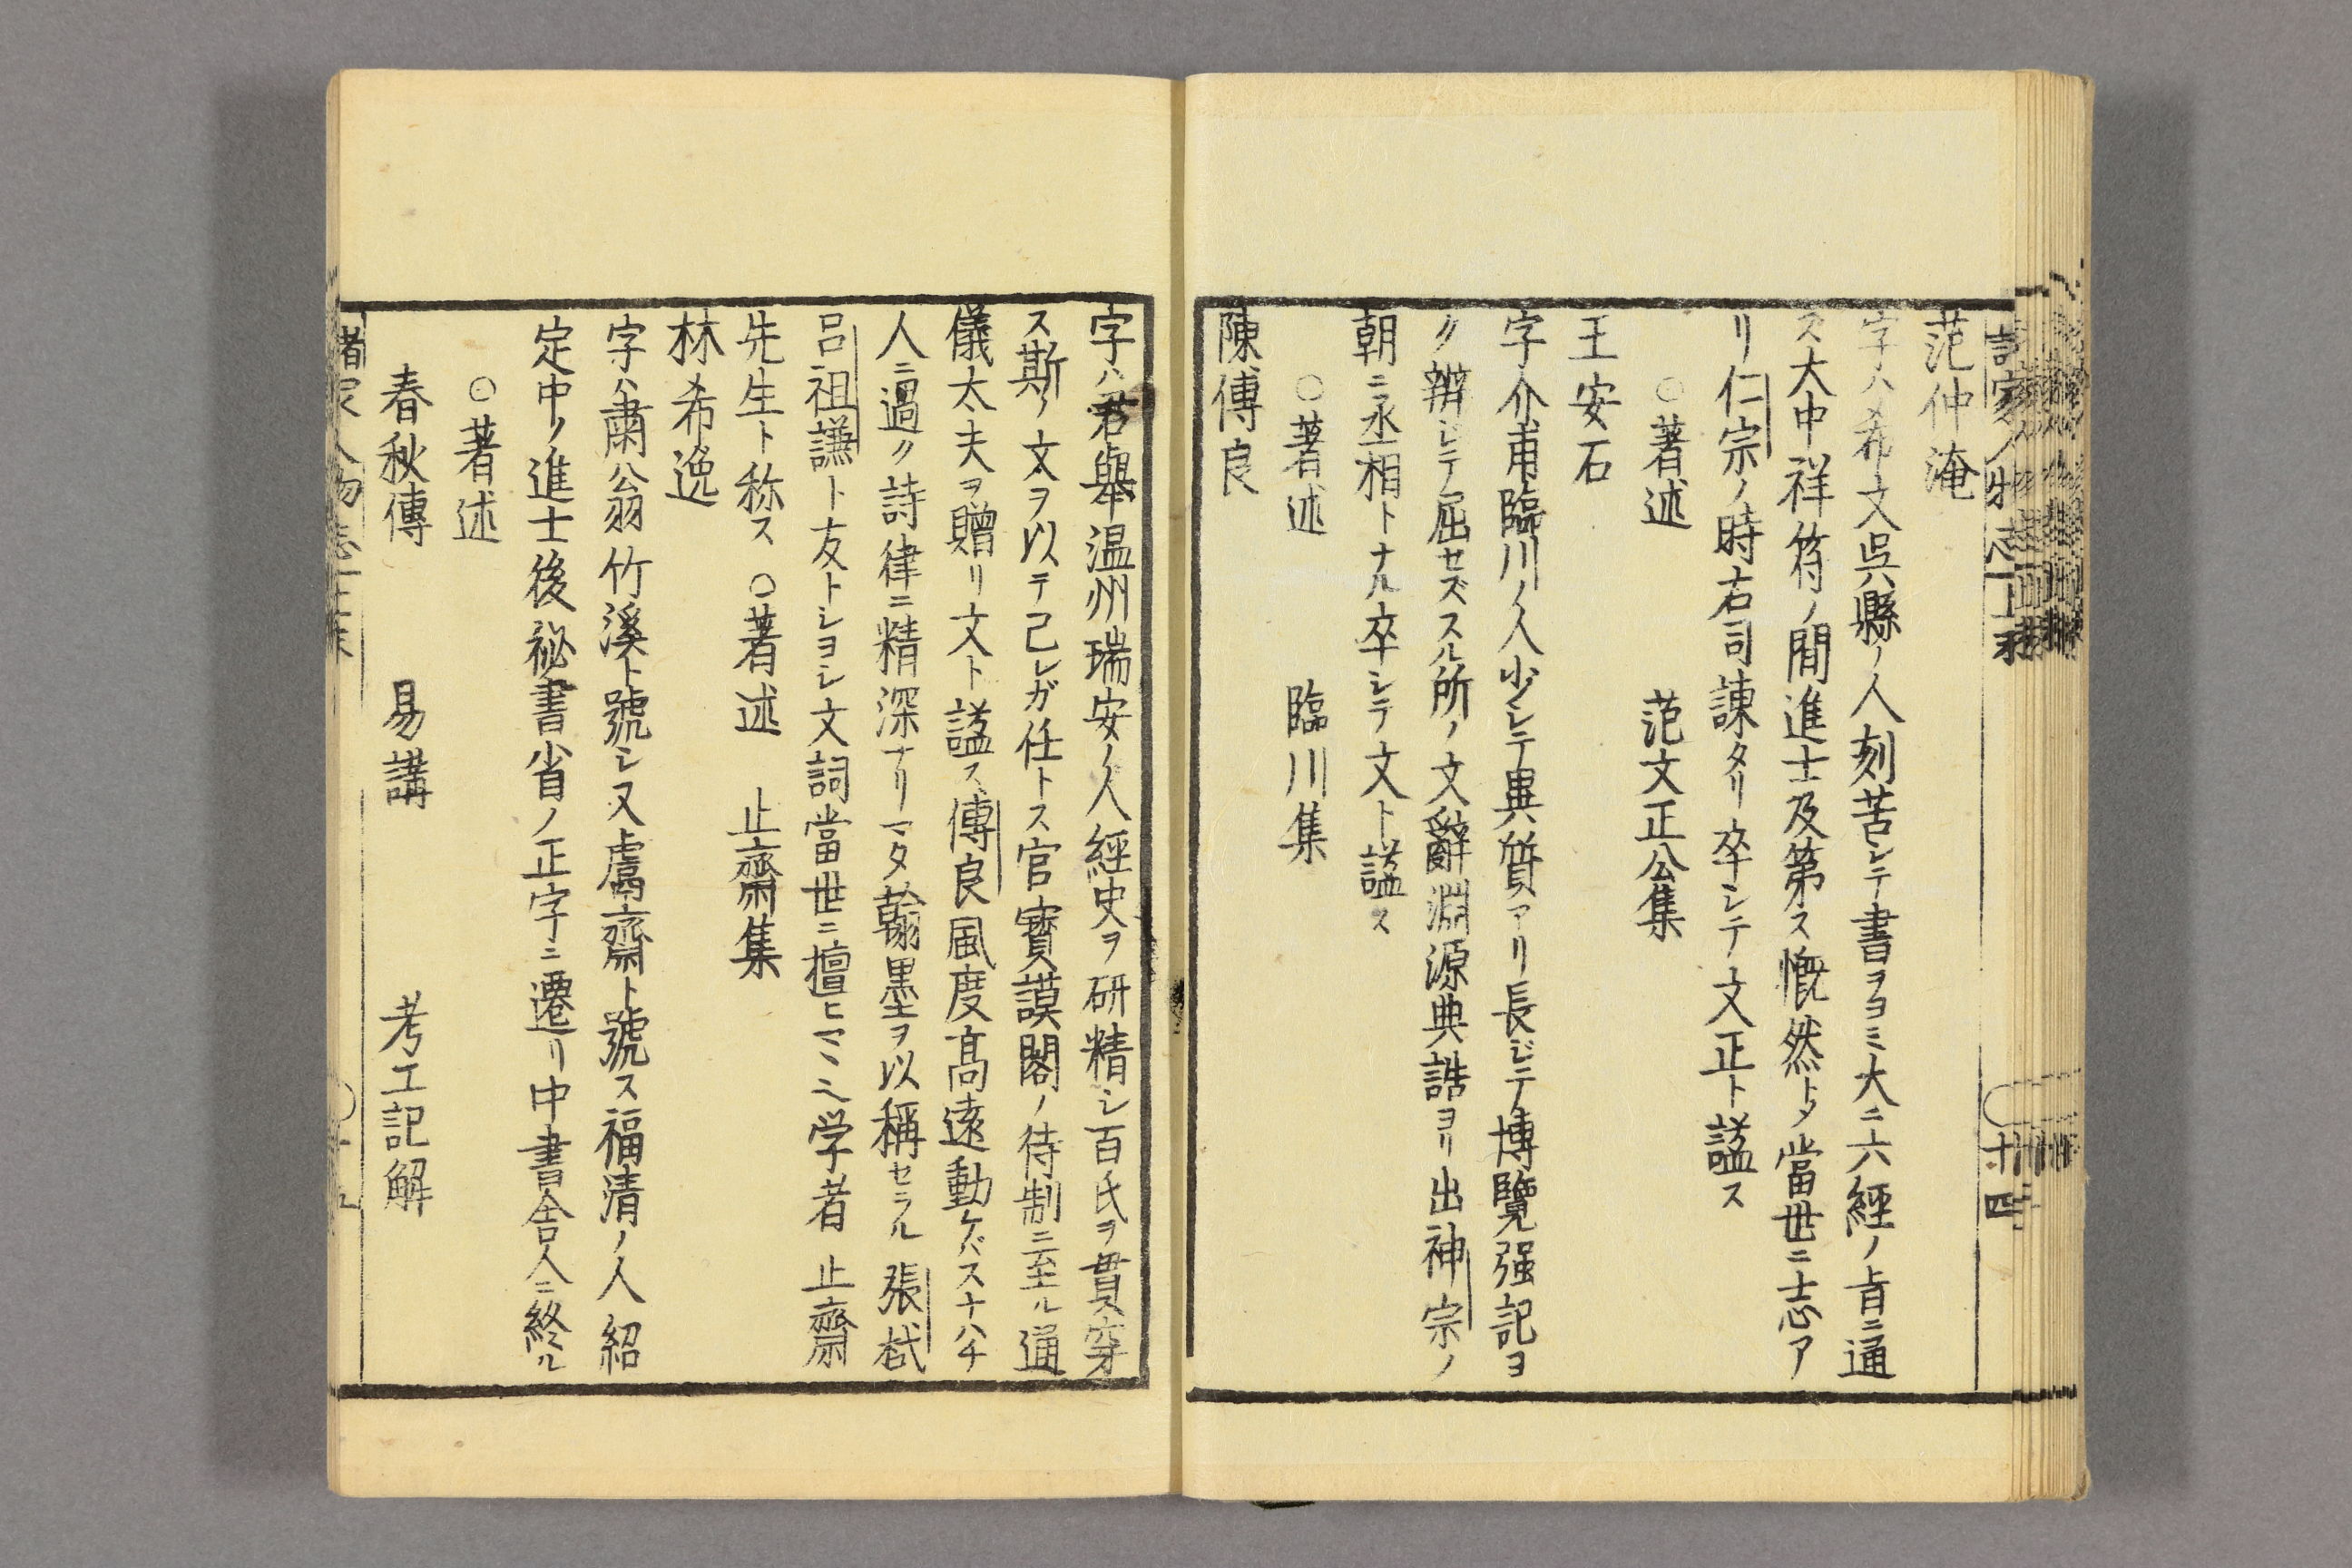 范仲淹
字ハ希文呉縣ノ人刻苦シテ書ヲヨミ大ニ六經ノ旨ニ通
ス大中祥符ノ間進士及第ス慨然トメ當世ニ志ア
リ仁宗ノ時右司諫タリ卒シテ文正ト謚ス
○著述 范文正公集
王安石
字介甫臨川ノ人少シテ異質アリ長ジテ博覽强記ヨ
ク辨ジテ屈セズスル所ノ文辭淵源典誥ヨリ出神宗ノ
朝ニ丞相トナル卒シテ文ト謚ス
○著述 臨川集
陳傅良
字ハ君舉温州瑞安ノ人經史ヲ研精シ百氏ヲ貫穿
ス斯ノ文ヲ以テ己レガ任トス官寳謨閣ノ待制ニ至ル通
儀太夫ヲ贈リ文ト謚ス傅良風度髙遠動ケバスナハチ
人ニ過ク詩律ニ精深ナリマタ翰墨ヲ以稱セラル張栻
呂祖謙ト友トシヨシ文詞當世ニ擅ヒマヽニシ学者止齋
先生ト称ス ○著述 止齋集
林希逸
字ハ肅翁竹溪ト號シ又鬳齋ト號ス福清ノ人紹
定中ノ進士後祕書省ノ正字ニ遷リ中書舎人ニ終ル
○著述
春秋傳 易講 考工記解